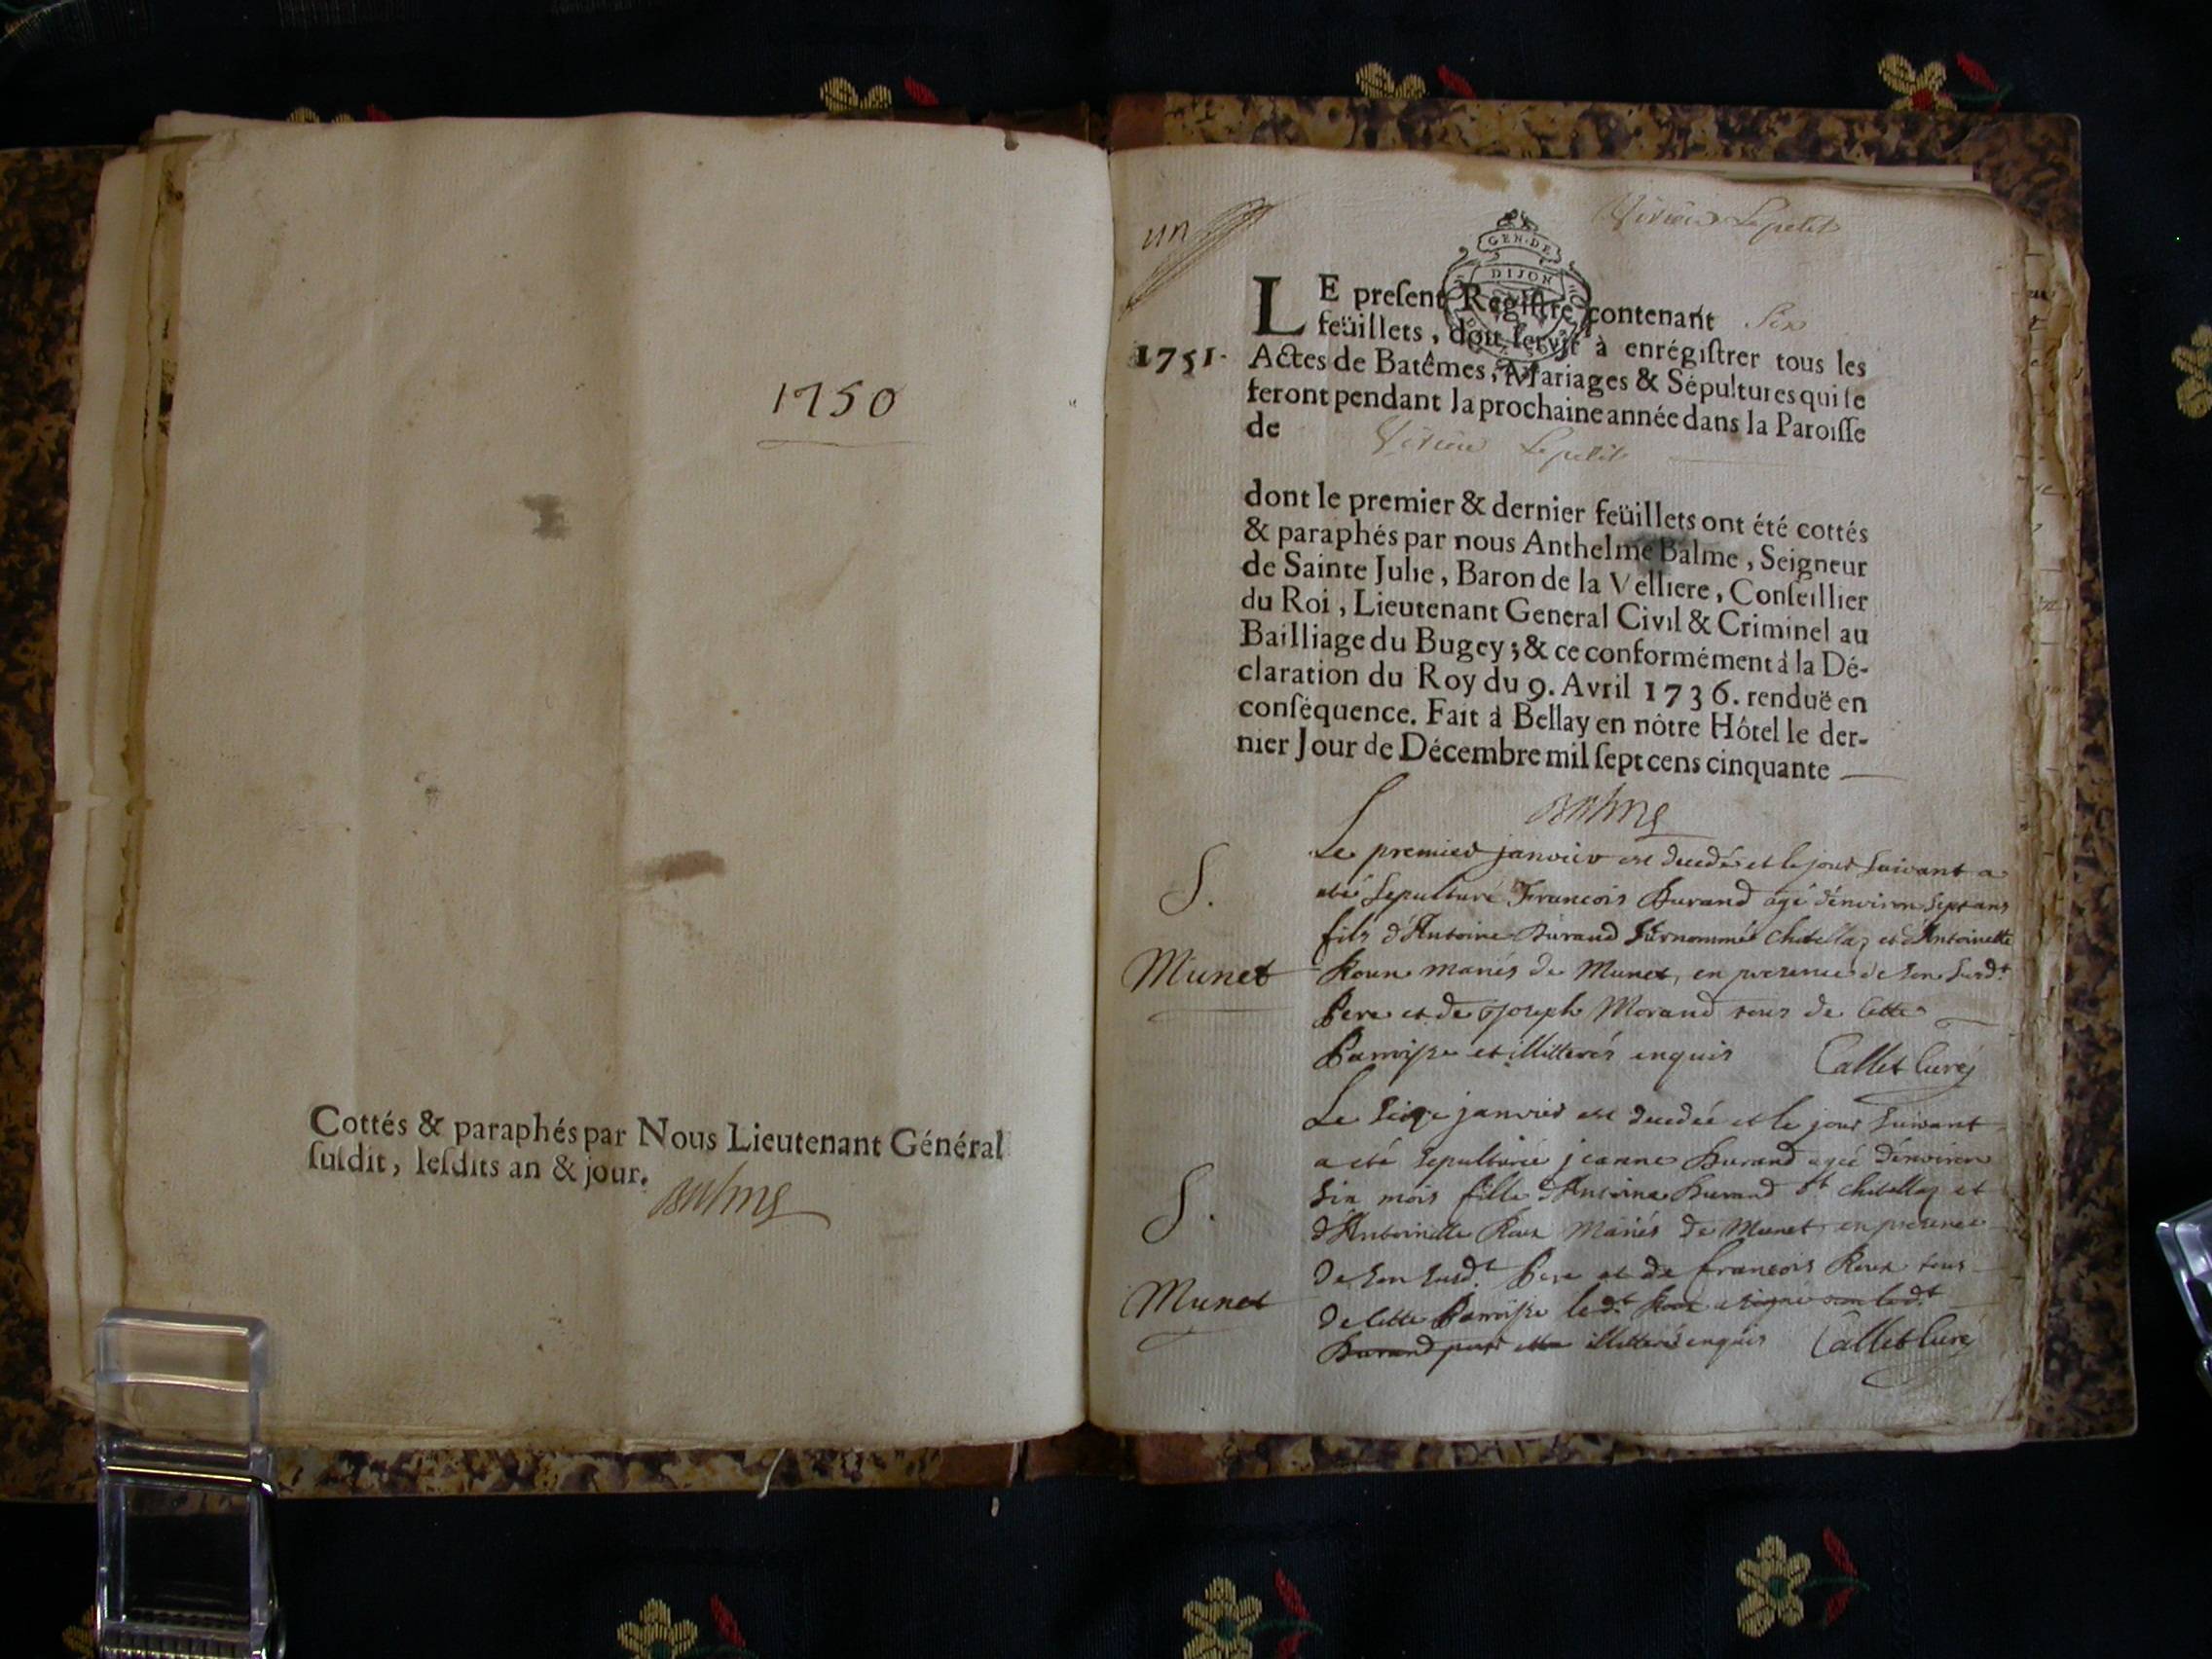 1750
Cottés & paraphés par Nous Lieutenant Général
ſuſdit, leſdits an & jour.
Balme
un
Virieu Le petit
GEN·DE
DIJON
LE preſent Regiſtre contenant Six
feüillets, doit ſervir à enrégiſtrer tous les
1751. Actes de Batêmes, Mariages & Sépultures qui ſe
feront pendant la prochaine année dans la Paroiſſe
de Virieu Le petit
dont le premier & dernier feüillets ont été cottés
& paraphés par nous Anthelme Balme, Seigneur
de Sainte Julie, Baron de la Velliere, Conſeillier
du Roi, Lieutenant General Civil & Criminel au
Bailliage du Bugey; & ce conformément à la Dé-
claration du Roy du 9. Avril 1736. renduë en
conſéquence. Fait à Bellay en nôtre Hôtel le der-
nier Jour de Décembre mil ſept cens cinquante
Balme
Le premier janvier est decedé et le jour suivant a
S. eté sepulturé Francois Durand agé d'environ sept ans
fils d'Antoine Durand surnommé Chatellaz et d'Antoinette
Munet Roux mariés de Munet, en presence de son susd.t
Pere et de Joseph Morand tous de cette
Parroisse et illitterés enquis Callet Curé
Le seize janvier est decedée et le jour suivant
a eté sepulturée jeanne Durand agée d'environ
S. six mois fille d'Antoine Durand dt chatellaz et
d'Antoinette Roux mariés de Munet en presence
de son susd.t Pere et de francois Roux tous
Munet de cette Parroisse led.t Roux a signé non led.t
Durand pour etre illitterés enquis Callet Curé